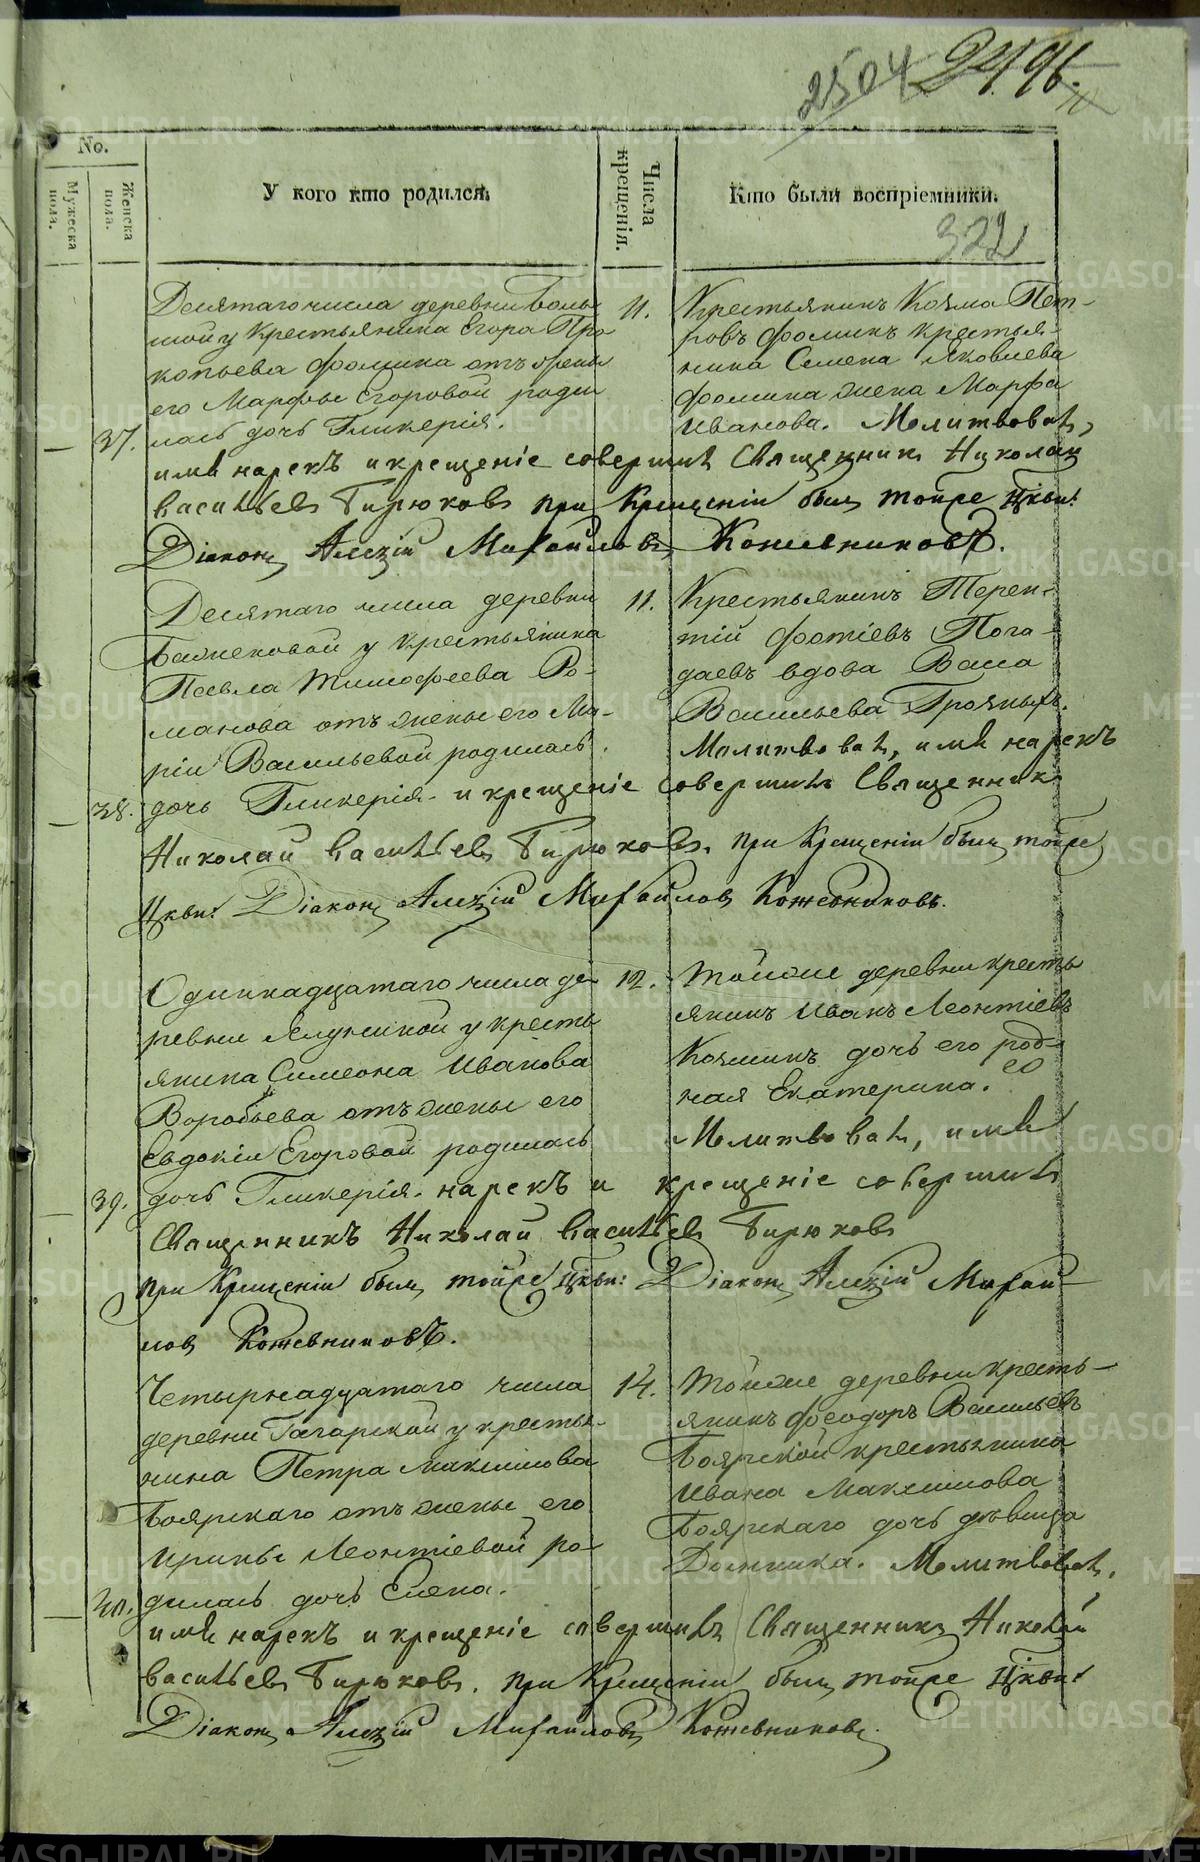 2504 2496.
No.
Мужеска пола.
Женска пола.
У кого кто родился.
Числа крещенія.
Кто были воспріемники.
322
Десятаго числа деревни Боль-
шой у крестьянина Егора Про
копьева Фомина отъ жены
его Марфы Егоровой роди
37. лась дочь Гликерія.
11.
Крестьянинъ Козма Пет-
ровъ Фоминъ крестья-
нина Семена Яковлева
Фомина жена Марфа
Иванова. Молитвовалъ,
имя нарекъ и крещеніе совершилъ Священникъ Николай
Васильевъ Бирюковъ при Крещеніи былъ тойже Цркви:
Діаконъ Алексій Михайловъ Кожевниковъ.
Десятаго числа деревни
Баженовой у крестьянина
Павла Тимофеева Ро-
манова отъ жены его Ма-
ріи Васильевой родилась
11.
Крестьянинъ Терен-
тій Фотіевъ Пога-
даевъ вдова Васса
Васильева Грозныхъ.
Молитвовалъ, имя нарекъ
38. дочь Гликерія. и крещеніе совершилъ Священникъ
Николай Васильевъ Бирюковъ. при Крещеніи былъ тойже
Цркви: Діаконъ Алексій Михайловъ Кожевниковъ.
Одиннадцатаго числа де
ревни у кресть
янина Симеона Иванова
Воробьева отъ жены его
Евдокіи Егоровой родилась
12.
Тойже деревни кресть
янинъ Иванъ Леонтіевъ
Козминъ дочь его род-
ная Екатерина.
Молитвовалъ, имя
39. дочь Гликерія. нарекъ и крещеніе совершилъ
Священникъ Николай Васильевъ Бирюковъ
при Крещеніи былъ тойже Цркви: Діаконъ Алексій Михай-
ловъ Кожевниковъ.
Четырнадцатаго числа
деревни Гагарской у крестья-
нина Петра Максимова
Боярскаго отъ жены его
Ирины Леонтіевой ро-
40. дилась дочь Елена.
14.
Тойже деревни кресть-
янинъ Феодоръ Васильевъ
Боярской крестьянина
Ивана Максимова
Боярскаго дочь дѣвица
Домника. Молитвовалъ,
имя нарекъ и крещеніе совершилъ Священникъ Николай
Васильевъ Бирюковъ. при Крещеніи былъ тойже Цркви:
Діаконъ Алексій Михайловъ Кожевниковъ.
METRIKI.GASO-URAL.RU